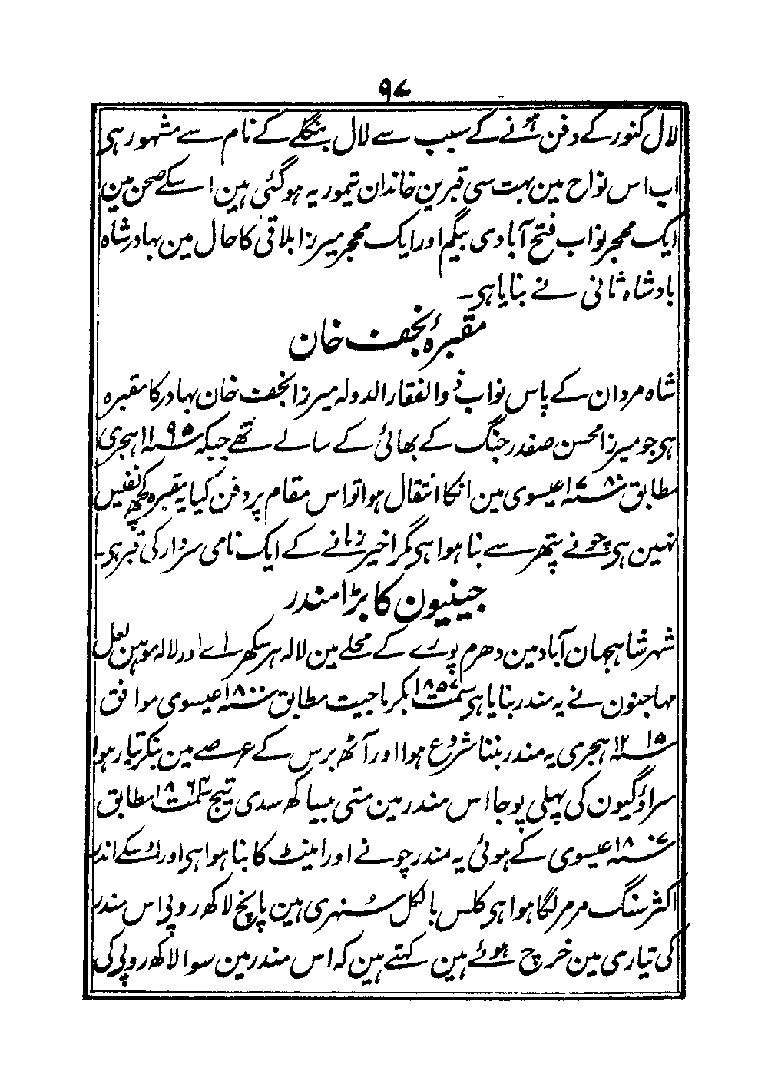 ۹۷
لال کنور کے دفن ہونے کے سبب سے لال بنگلے کے نام سے مشہور ہی
اب اس نواح مین بہت سی قبرین خاندان تیموریہ ہوگئی ہین اسکے صحن مین
ایک محجر نواب فتح آبادی بیگم اور ایک محجر میرزا بلاقی کا حال مین بہادر شاہ
بادشاہ ثانی نے بنایا ہی۔
مقبرۂ نجف خان
شاہ مردان کے پاس نواب ذوالفقار الدولہ میرزا نجف خان بہادر کا مقبرہ
ہی جو میرزا محسن صفدر جنگ کے بھائی کے سالے تھے جبکہ ۱۱۹۵؁ ہجری
مطابق ۱۷۸۰؁ عیسوی مین انکا انتقال ہوا تو اس مقام پر دفن کیا یہ مقبرہ کچھ نفیس
نہین ہی چونے پتھر سے بنا ہوا ہی مگر اخیر زمانے کے ایک نامی سردار کی قبر ہی۔
جینیون کا بڑا مندر
شہر شاہجہان آباد مین دھرم پورے کے محلے مین لالہ ہر سکھ راے اور لالہ موہن لعل
مہاجنون نے یہ مندر بنایا ہی سمت ۱۸۵۷ بکرماجیت مطابق ۱۸۰۰؁ عیسوی موافق
۱۲۱۵؁ ہجری یہ مندر بننا شروع ہوا اور آٹھ برس کے عرصے مین بنکر تیار ہوا
سراؤگیون کی پہلی پوجا اس مندر مین متی بیساکھ سدی تیج سمت ۱۸۶۴ مطابق
۱۸۰۷؁ عیسوی کے ہوئی یہ مندر چونے اور اینٹ کا بنا ہوا ہی اور اسکے اندر
اکثر سنگ مرمر لگا ہوا ہی کلس بالکل سنہری ہین پانچ لاکھ روپی اس مندر
کی تیاری مین خرچ ہوئے ہین کہتے ہین کہ اس مندر مین سوا لاکھ روپی کی